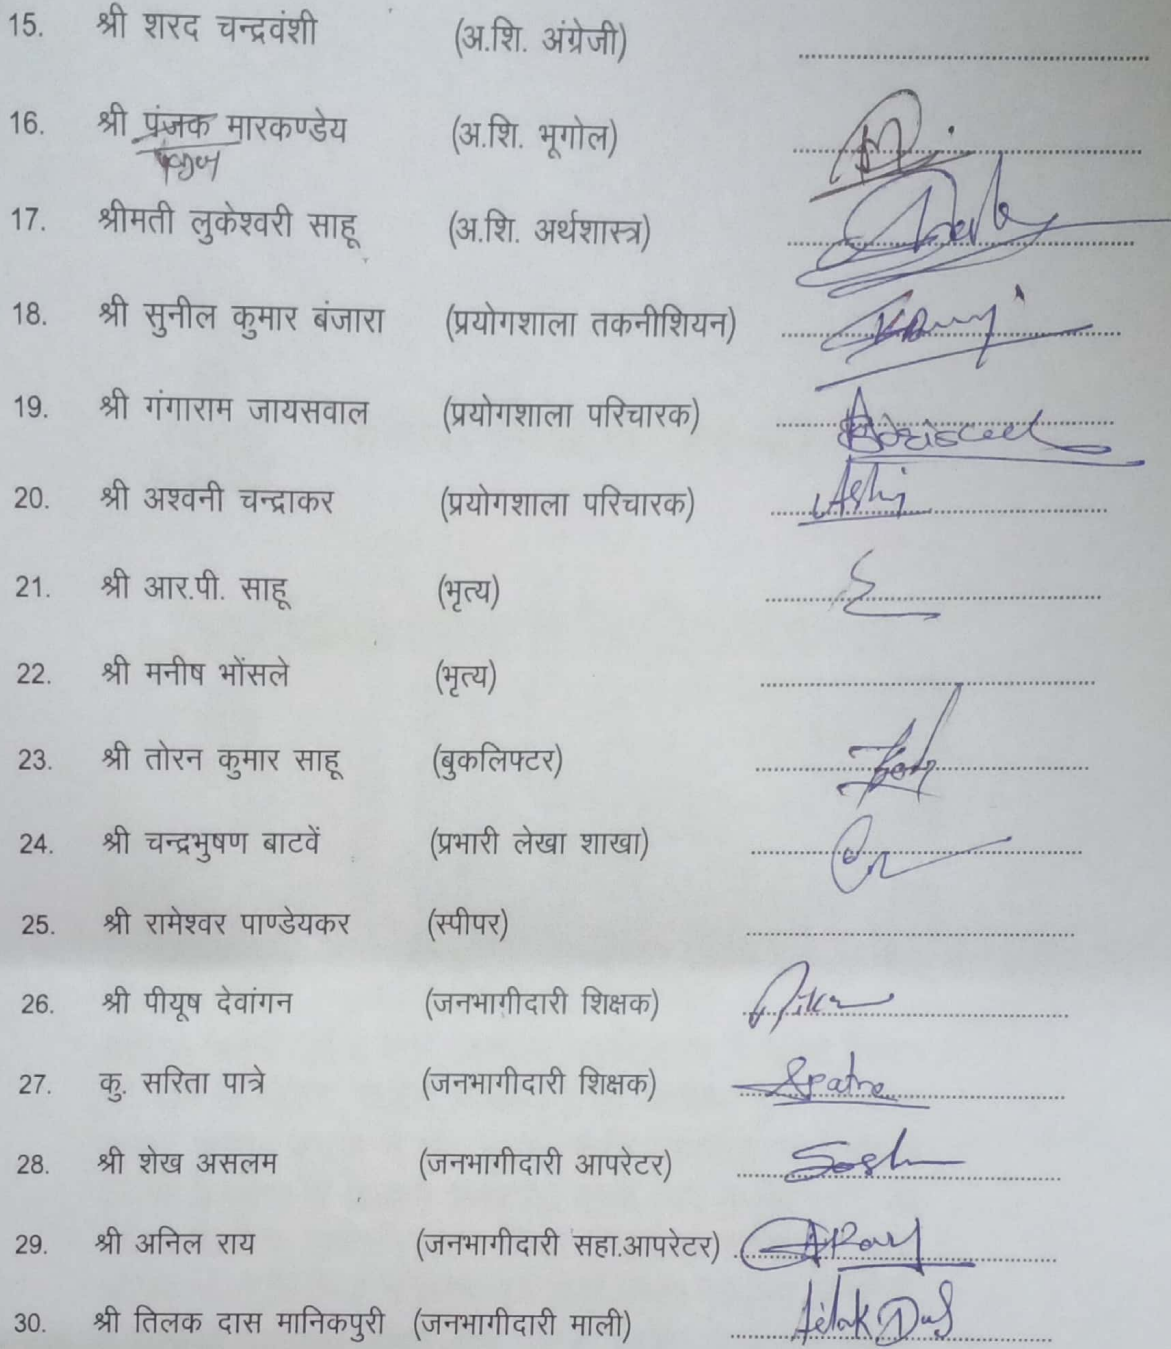 15. श्री शरद चन्द्रवंशी (अ.शि. अंग्रेजी)
16. श्री पंजक मारकण्डेय (अ.शि. भूगोल)
पंकज
17. श्रीमती लुकेश्वरी साहू (अ.शि. अर्थशास्त्र)
18. श्री सुनील कुमार बंजारा (प्रयोगशाला तकनीशियन)
19. श्री गंगाराम जायसवाल (प्रयोगशाला परिचारक)
20. श्री अश्वनी चन्द्राकर (प्रयोगशाला परिचारक)
21. श्री आर.पी. साहू (भृत्य)
22. श्री मनीष भोंसले (भृत्य)
23. श्री तोरन कुमार साहू (बुकलिफ्टर)
24. श्री चन्द्रभुषण बाटवें (प्रभारी लेखा शाखा)
25. श्री रामेश्वर पाण्डेयकर (स्पीपर)
26. श्री पीयूष देवांगन (जनभागीदारी शिक्षक)
27. कु. सरिता पात्रे (जनभागीदारी शिक्षक) Spatre
28. श्री शेख असलम (जनभागीदारी आपरेटर)
29. श्री अनिल राय (जनभागीदारी सहा.आपरेटर) ARay
30. श्री तिलक दास मानिकपुरी (जनभागीदारी माली) Tilak Das